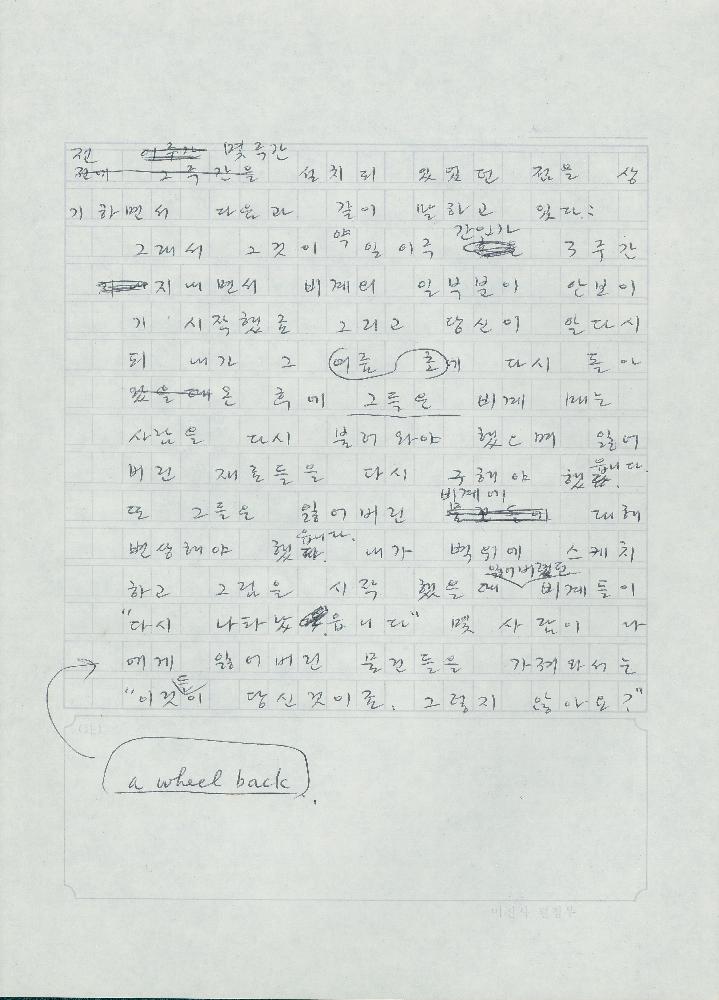 전 몇 주간
설치되 있었던 점을 상
기하면서 다음과 같이 말하고 있다:
그래서 그것이 약 일이주 간인가 3주간
지내면서 비계의 일부분이 안보이
기 시작했죠 그리고 당신이 알다시
피 내가 그 여름 에 다시 돌아
온 후에 그들은 비계 매는
사람을 다시 불러와야 했으며 잃어
버린 재료들을 다시 구해야 했읍니다.
또 그들은 잃어버린 비계에 대해
변상해야 했읍니다. 내가 벽위에 스케치
하고 그림을 시작 했을때 잃어버렸던 비계들이
"다시 나타났읍니다" 몇 사람이 나
에게 잃어버린 물건들을 가져와서는
"이것들이 당신것이죠. 그렇지 않아요?"
a wheel back.
미진사 편집부